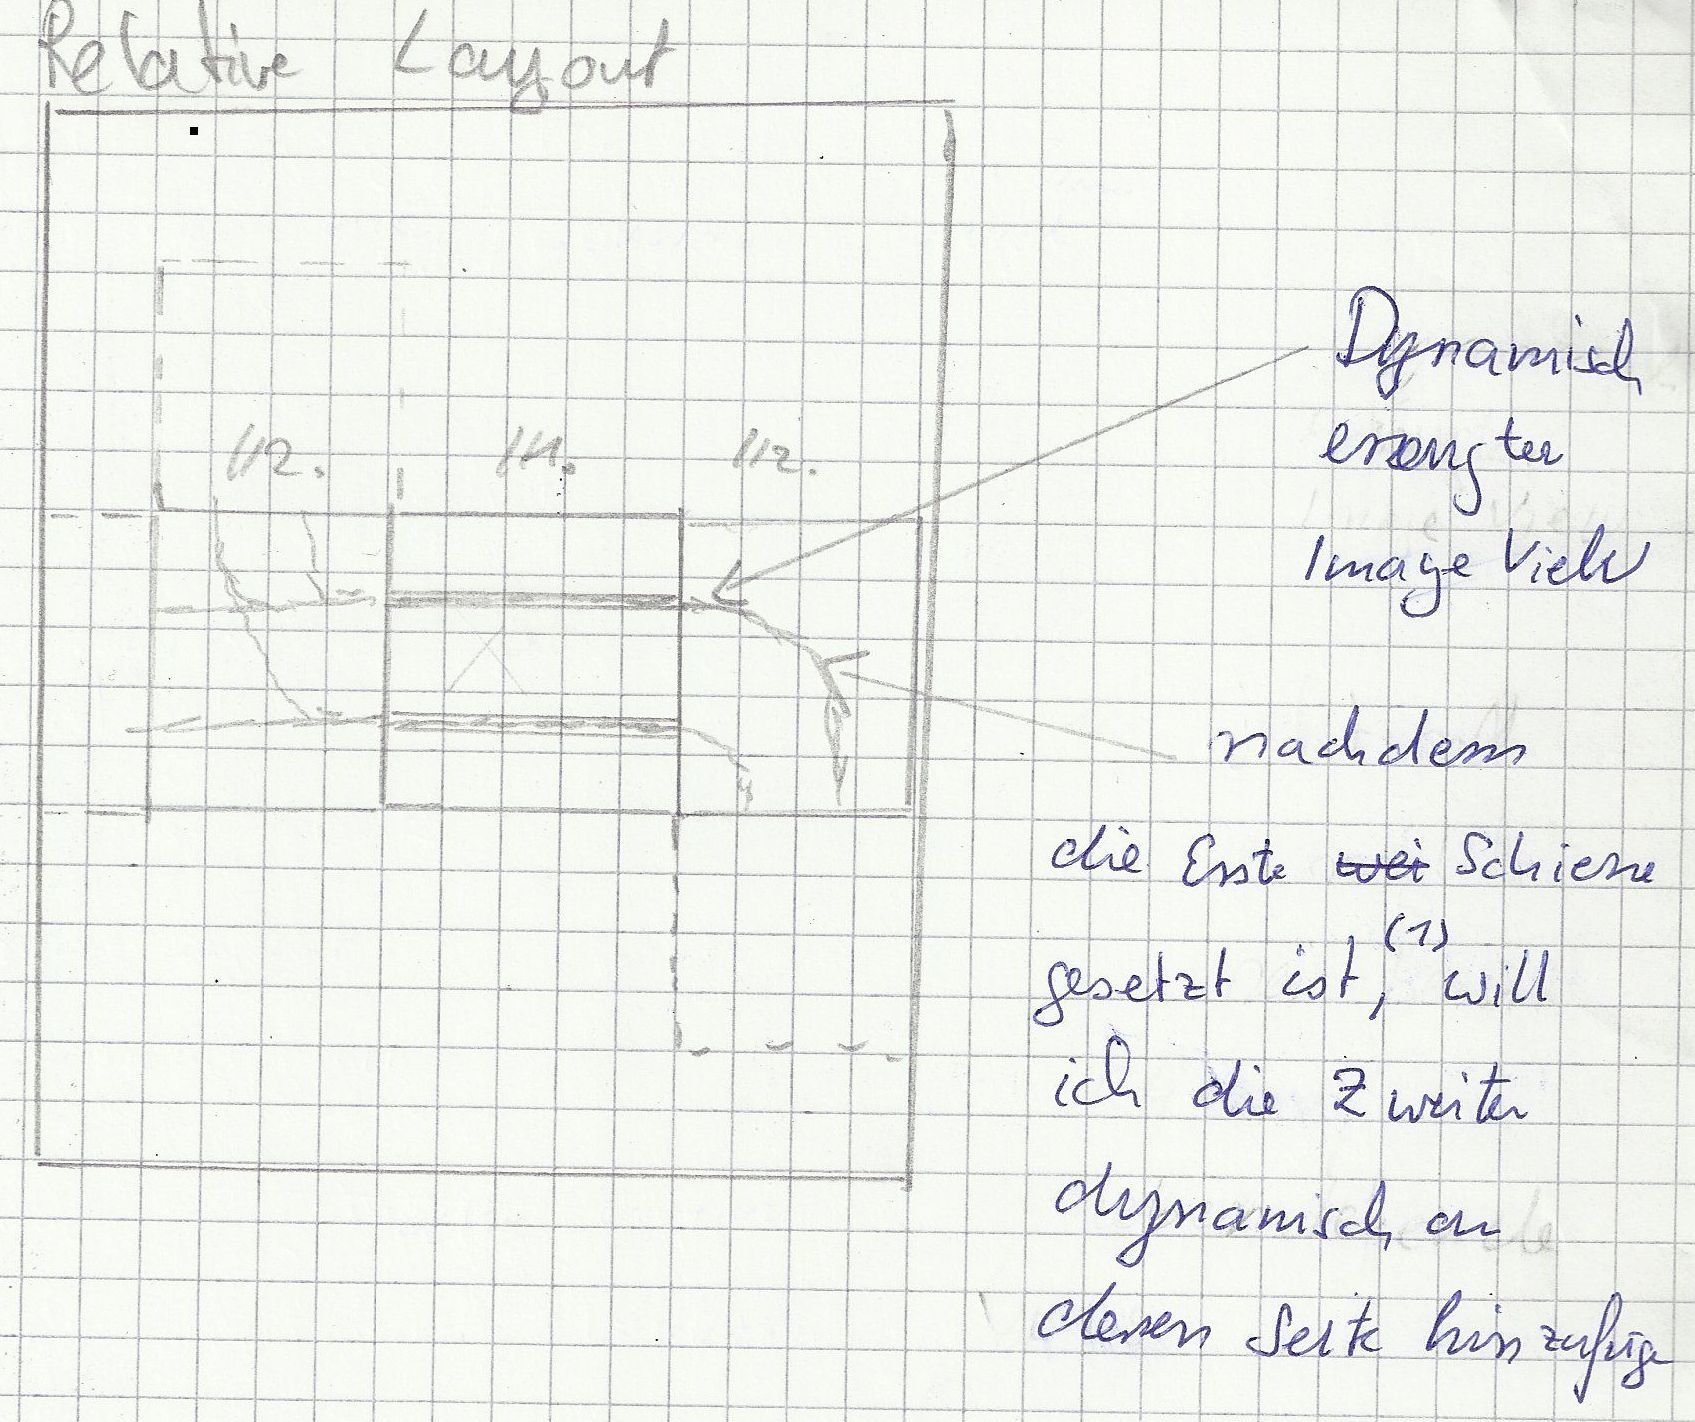 Relative Layout
112. 111. 112.
Dynamisch
erzeugter
Image View
nachdem
die Erste wei Schiene
(1)
gesetzt ist, will
ich die Zweiter
dynamisch an
deren Seite hinzufüge